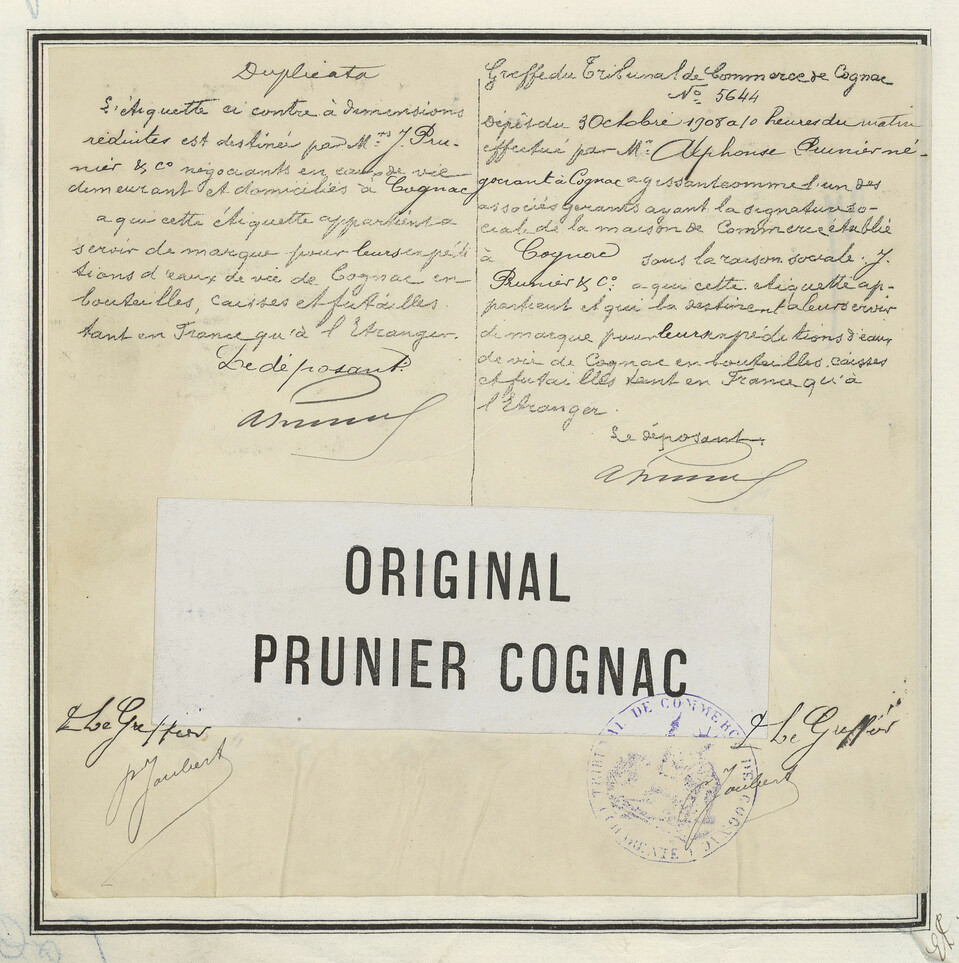 Duplicata
L'étiquette ci contre à dimensions
réduites est destinée par M.rs J. Pru-
nier & C.o négociants en eaux de vie
demeurant et domiciliés à Cognac
a qui cette étiquette appartient a
servir de marque pour leurs expédi
tions d'eaux de vie de Cognac en
bouteilles, caisses et futailles.
tant en France qu'à l'Etranger.
Le déposant
Greffe du Tribunal de Commerce de Cognac
No. 5644
Dépôt du 3 Octobre 1908 a 10 heures du matin
effectué par Mr. Alphonse Prunier né-
gociant à Cognac agissant comme l'un des
associés gerants ayant la signature so-
ciale de la maison de Commerce établie
à Cognac sous la raison sociale. J.
Prunier & C.o a qui cette etiquette ap-
partient et qui la destinent a leur servir
de marque pour leurs expéditions d'eaux
de vie de Cognac en bouteilles, caisses
et futailles tant en France qu'à
l'Etranger.
Le déposant.
ORIGINAL
PRUNIER COGNAC
Le Greffier
Joubert
Le Greffier
Joubert
TRIBUNAL DE COMMERCE DE COGNAC
CHARENTE